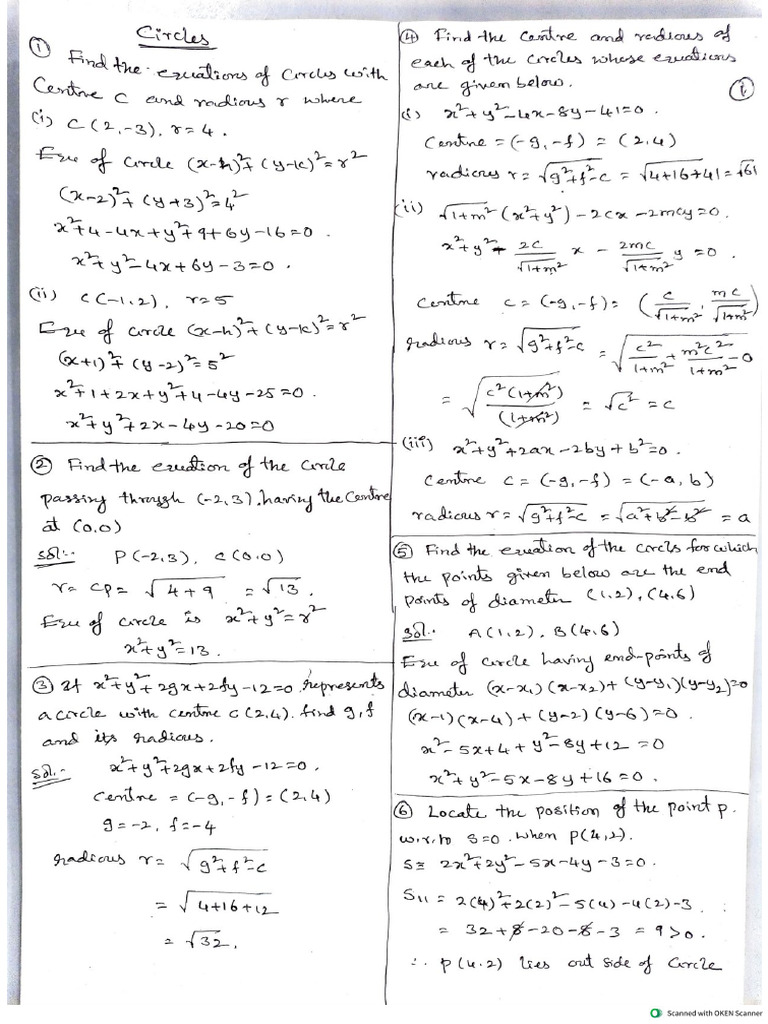 Circles
① Find the equations of Circles with
Centre C and radious r where
(i) C(2,-3), r=4.
Eqn of Circle (x-h)²+(y-k)²=r²
(x-2)²+(y+3)²=4²
x²+4-4x+y²+9+6y-16=0.
x²+y²-4x+6y-3=0.
(ii) C(-1,2), r=5
Eqn of Circle (x-h)²+(y-k)²=r²
(x+1)²+(y-2)²=5²
x²+1+2x+y²+4-4y-25=0.
x²+y²+2x-4y-20=0
② Find the equation of the circle
passing through (-2,3), having the Centre
at (0,0)
sol:- P(-2,3), C(0,0)
r=CP=√4+9 =√13.
Eqn of Circle is x²+y²=r²
x²+y²=13.
③ If x²+y²+2gx+2fy-12=0, represents
a circle with centre C(2,4). find g,f
and its radious.
sol:- x²+y²+2gx+2fy-12=0.
Centre=(-g,-f)=(2,4)
g=-2, f=-4
radious r=√g²+f²-c
=√4+16+12
=√32.
④ Find the Centre and radious of
each of the circles whose equations
are given below.
①
(i) x²+y²-4x-8y-41=0.
Centre=(-g,-f)=(2,4)
radious r=√g²+f²-c=√4+16+41=√61
(ii) √1+m²(x²+y²)-2cx-2mcy=0.
x²+y²-2c/√1+m² x - 2mc/√1+m² y=0.
Centre C=(-g,-f)=(c/√1+m², mc/√1+m²)
radious r=√g²+f²-c=√c²/1+m²+m²c²/1+m²-0
=√c²(1+m²)/(1+m²) =√c²=c
(iii) x²+y²+2ax-2by+b²=0.
Centre C=(-g,-f)=(-a,b)
radious r=√g²+f²-c=√a²+b²-b²=a
⑤ Find the equation of the circls for which
the points given below are the end
points of diameter (1,2),(4,6)
sol:- A(1,2), B(4,6)
Eqn of circle having end-points of
diameter (x-x₁)(x-x₂)+(y-y₁)(y-y₂)=0
(x-1)(x-4)+(y-2)(y-6)=0.
x²-5x+4+y²-8y+12=0
x²+y²-5x-8y+16=0.
⑥ Locate the position of the point p.
w.r.to S=0. when P(4,2).
S≡ 2x²+2y²-5x-4y-3=0.
S₁₁=2(4)²+2(2)²-5(4)-4(2)-3.
=32+8-20-8-3=9>0.
∴ P(4,2) lies out side of Circle
Scanned with OKEN Scanner